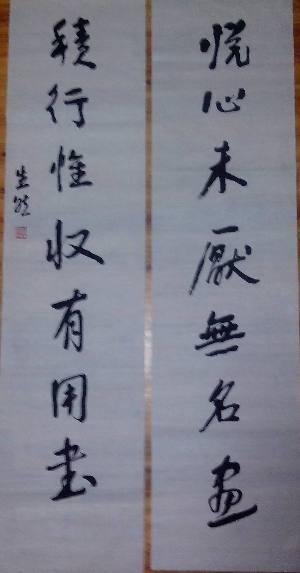 悦心未厭無名畫
積行惟収有用書
生然